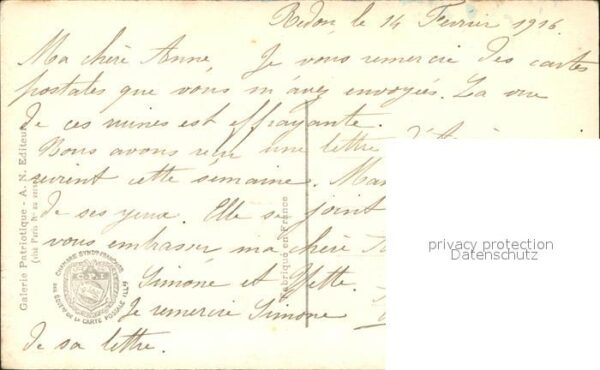 Redon, le 14 Fevrier 1916.
Ma chère Anne, Je vous remercie des cartes
postales que vous m'avez envoyées. La vue
de ces ruines est effrayante.
Nous avons reçu une lettre
cette semaine.
de ses yeux. Elle se joint
vous embrasser ma chère
Simone et Yette.
Je remercie Simone
de sa lettre.
Galerie Patriotique - A. N. Editeur
Fabrique en France
CHAMBRE SYNDle FRANÇAISE
DE LA CARTE POSTALE ILLée
privacy protection
Datenschutz